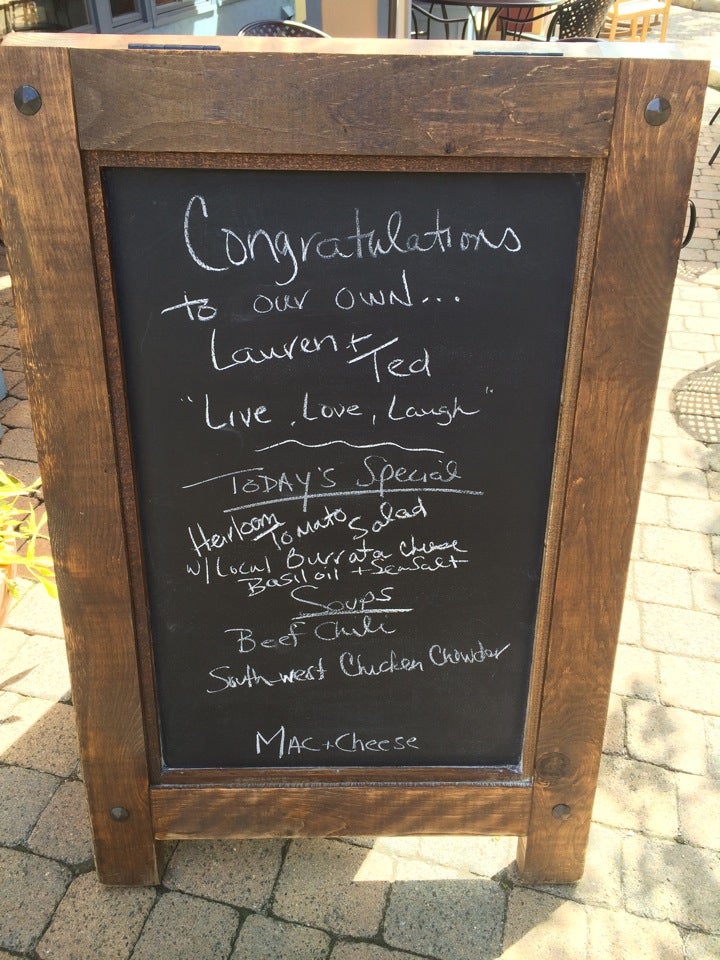 Congratulations
to our own...
Lauren + Ted
"Live, Love, Laugh"
Today's Special
Heirloom Tomato Salad
w/ Local Burrata Cheese
Basil oil + Sea Salt
Soups
Beef Chili
Southwest Chicken Chowder
Mac + Cheese